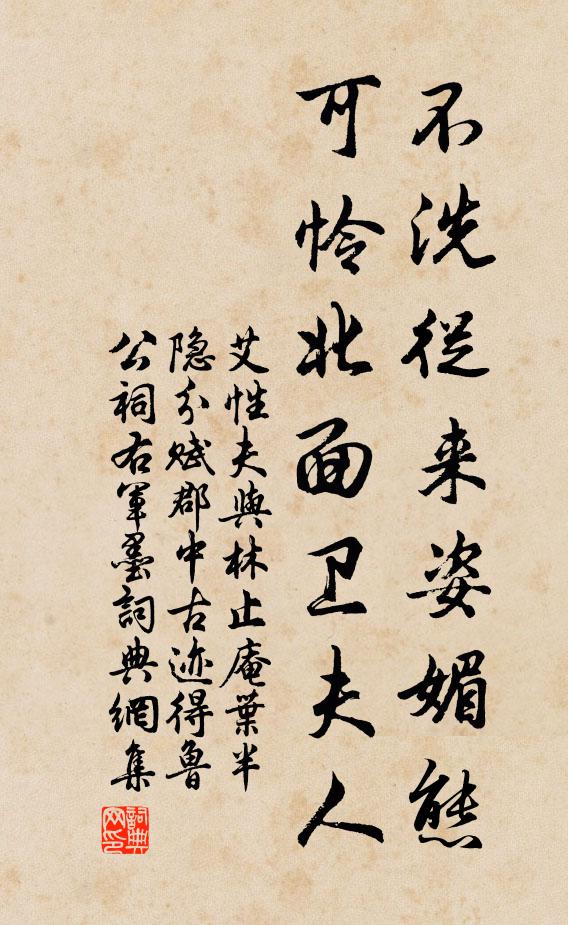 不洗従来姿媚態
可怜北面卫夫人
艾性夫與林止庵葉半
隐分賦郡中古迹得魯
公祠右軍墨詞典網集
詞典网印